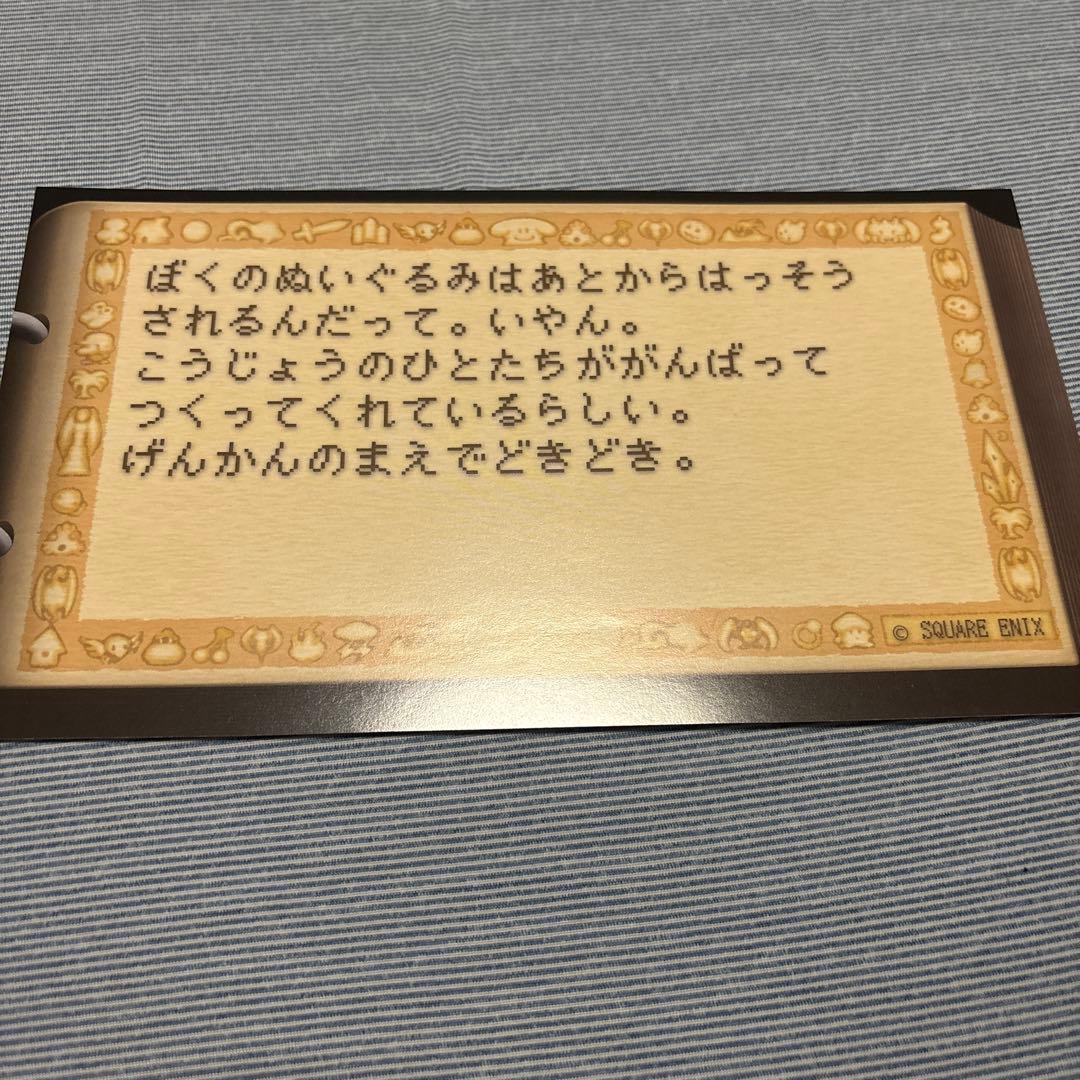 ぼくのぬいぐるみはあとからはっそう
されるんだって。いやん。
こうじょうのひとたちががんばって
つくってくれているらしい。
げんかんのまえでどきどき。
© SQUARE ENIX